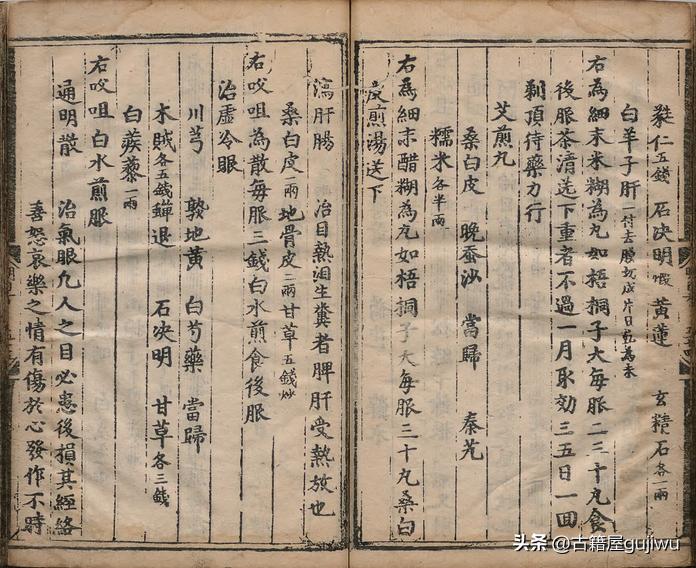 蕤仁五錢 石决明煅 黄蓮 玄精石各一兩
白羊子肝一付去膜切成片日乾為末
右為細末米糊為丸如梧桐子大每服二三十丸食
後服茶清送下重者不過一月取効三五日一回
剃頂待藥力行
艾煎丸
桑白皮 晚蚕沙 當歸 秦艽
糯米各半兩
右為細末醋糊為丸如梧桐子大每服三十丸桑白
皮煎湯送下
瀉肝腸 治目熱泪生糞者脾肝受熱放也
桑白皮一兩 地骨皮二兩 甘草五錢炒
右㕮咀為散每服三錢白水煎食後服
治虛冷眼
川芎 熟地黄 白芍藥 當歸
木賊各五錢 蟬退 石决明 甘草各三錢
白蒺藜一兩
右㕮咀白水煎服
通明散 治氣眼凢人之目必患後損其經絡
喜怒哀樂之情有傷於心發作不時
头条 @古籍屋gujiwu